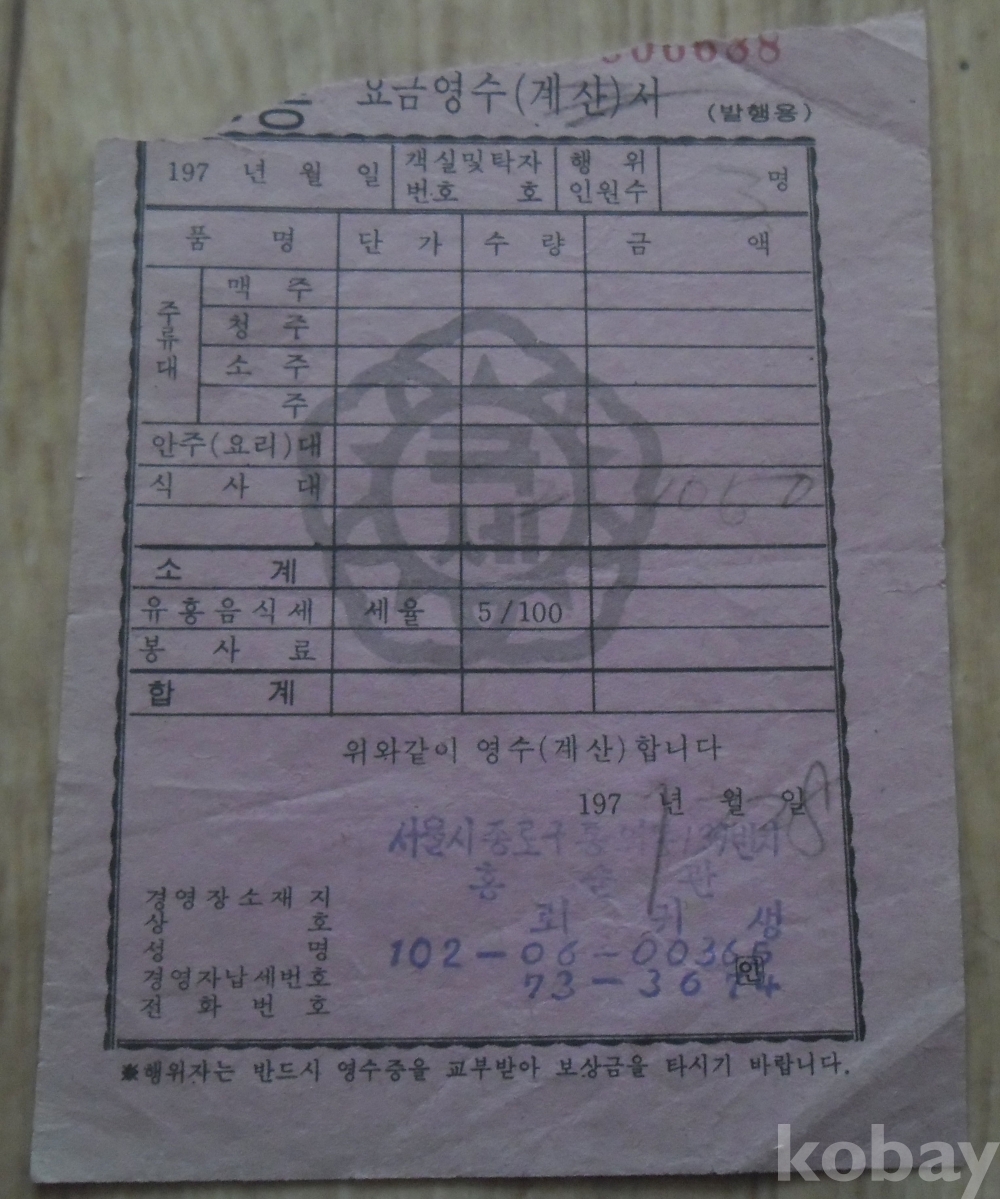 00638
요금영수(계산)서 (발행용)
197 년 월 일 객실및탁자 번호 호 행위 인원수 3 명
품 명 단 가 수 량 금 액
주류대 맥 주
청 주
소 주
주
안주(요리)대
식 사 대
국세
소 계
유흥음식세 세율 5/100
봉 사 료
합 계
위와같이 영수(계산)합니다
197 년 월 일
서울시종로구
경영장소재지
상 호
성 명
경영자납세번호 102-06-00365
전 화 번 호 73-3674
인
※행위자는 반드시 영수증을 교부받아 보상금을 타시기 바랍니다.
kobay